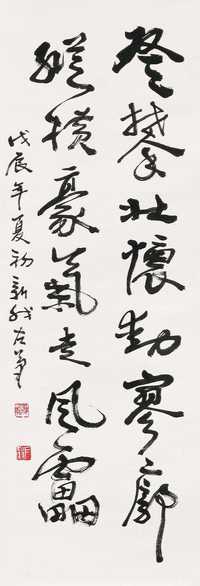 登攀壯懷動寥廓
縱橫豪氣走風靁
戊辰年夏初新我左筆